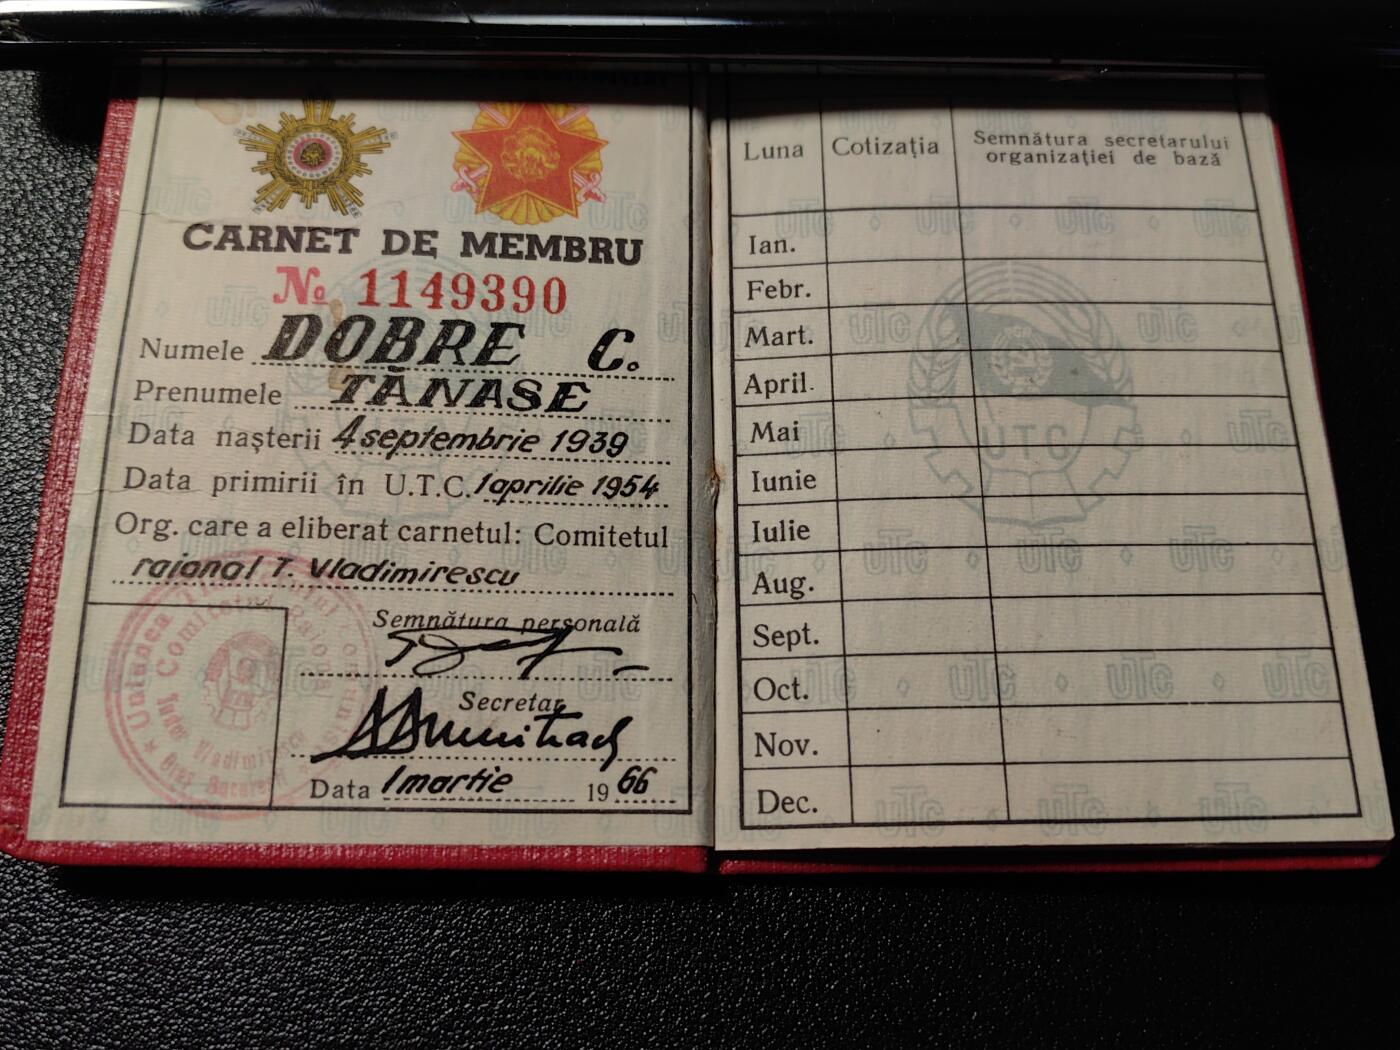 CARNET DE MEMBRU
№ 1149390
Numele DOBRE C.
Prenumele TĂNASE
Data nașterii 4 septembrie 1939
Data primirii în U.T.C. 1 aprilie 1954
Org. care a eliberat carnetul: Comitetul
raional T. Vladimirescu
Semnătura personală
Secretar
Data 1 martie 1966
Uniunea Tineretului Comunist
Comitetul Raional
Tudor Vladimirescu
Oraș București
Luna Cotizația Semnătura secretarului
organizației de bază
Ian.
Febr.
Mart.
April.
Mai
Iunie
Iulie
Aug.
Sept.
Oct.
Nov.
Dec.
UTC